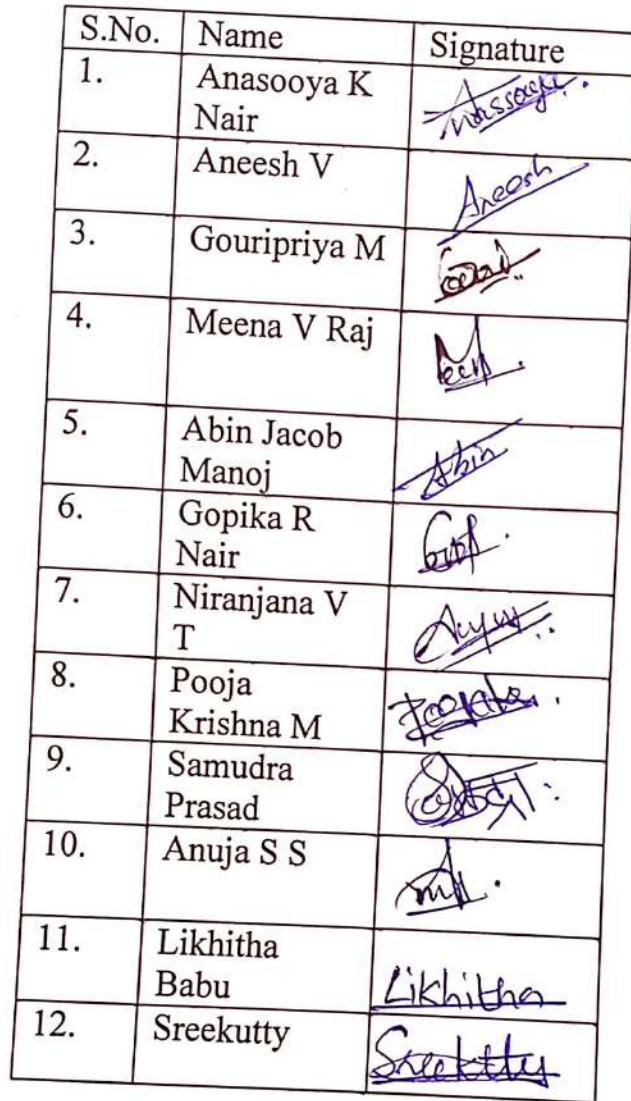 S.No. Name Signature
1. Anasooya K
Nair
2. Aneesh V Aneesh
3. Gouripriya M
4. Meena V Raj
5. Abin Jacob Abin
Manoj
6. Gopika R
Nair
7. Niranjana V
T
8. Pooja
Krishna M
9. Samudra
Prasad
10. Anuja S S
11. Likhitha
Babu Likhitha
12. Sreekutty Sreekutty